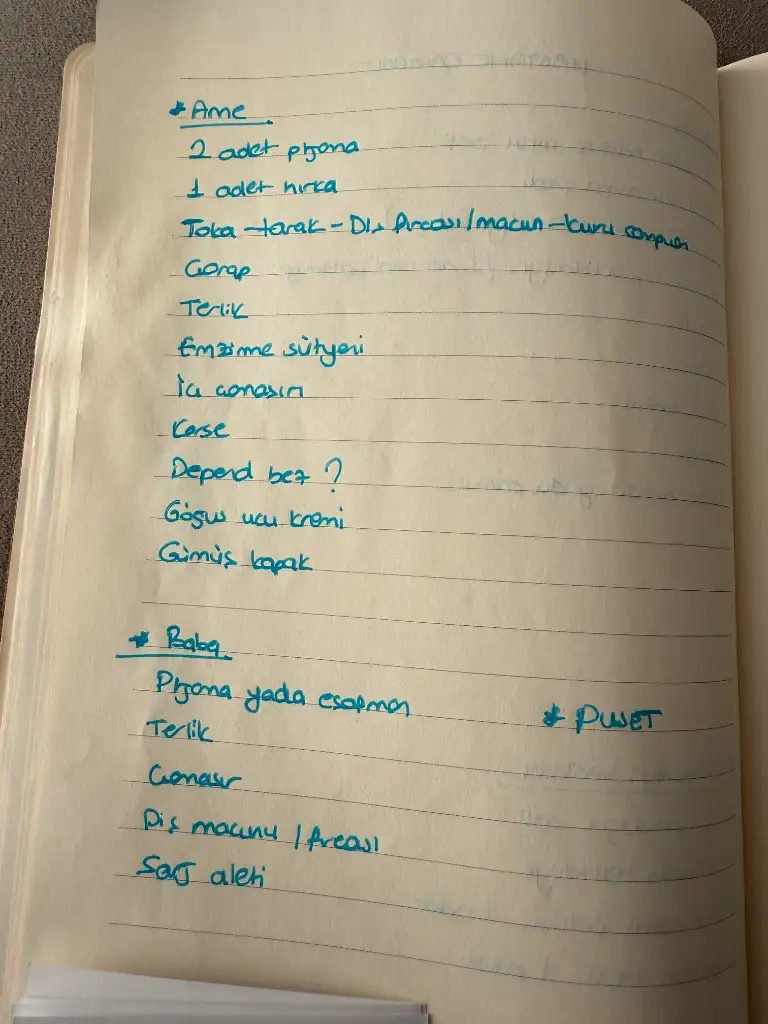 * Anne
2 adet pijama
1 adet hırka
Toka - tarak - Diş fırcası / macun - kuru şampuan
Çorap
Terlik
Emzirme sütyeni
İç çamaşırı
Korse
Depend bez ?
Göğüs ucu kremi
Gümüş kapak
* Baba
Pijama yada eşofman
* PUSET
Terlik
Çamaşır
Diş macunu / fırcası
Şarj aleti